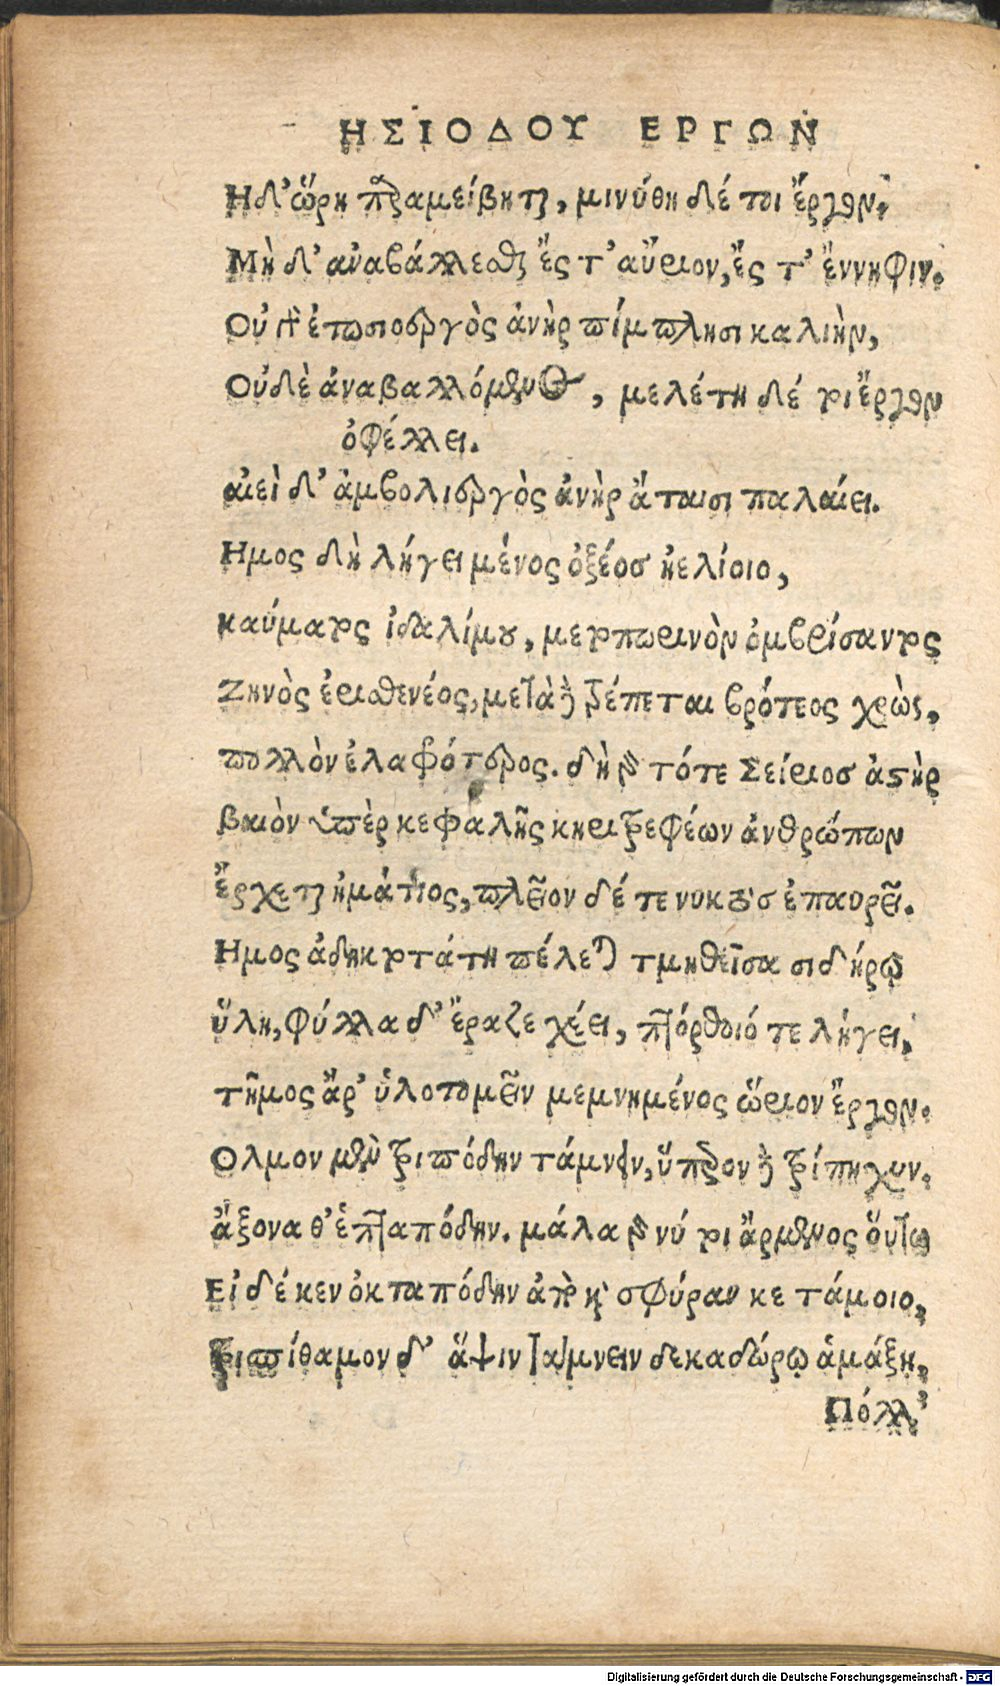 ΗΣΙΟΔΟΥ ΕΡΓΩΝ
Ηδ' ὥρη παραμείβηται, μινύθη δέ τοι ἔργον.
Μὴ δ' ἀναβάλλεσθαι ἔς τ' αὔριον, ἔς τ' ἔννηφιν.
Οὐ γὰρ ἐτωσιοεργὸς ἀνὴρ πίμπλησι καλιὴν,
Οὐδὲ ἀναβαλλόμενος, μελέτη δέ τοι ἔργον
ὀφέλλει.
αἰεὶ δ' ἀμβολιεργὸς ἀνὴρ ἄταισι παλαίει.
Ημος δὴ λήγει μένος ὀξέος ἠελίοιο,
καύματος ἰδαλίμου, μετοπωρινὸν ὀμβρίσαντος
Ζηνὸς ἐρισθενέος, μετὰ δὲ τρέπεται βρότεος χρὼς,
πολλὸν ἐλαφρότερος. δὴ γὰρ τότε Σείριος ἀστὴρ
βαιὸν ὑπὲρ κεφαλῆς κηριτρεφέων ἀνθρώπων
ἔρχεται ἠμάτιος, πλεῖον δέ τε νυκτὸς ἐπαυρεῖ.
Ημος ἀδηκτοτάτη πέλεται τμηθεῖσα σιδήρῳ
ὕλη, φύλλα δ' ἔραζε χέει, πτόρθοιό τε λήγει,
τῆμος ἄρ' ὑλοτομεῖν μεμνημένος ὥριον ἔργον.
Ολμον μὲν τριπόδην τάμνειν, ὕπερον δὲ τρίπηχυν.
ἄξονα θ' ἑπταπόδην. μάλα γὰρ νύ τοι ἄρμενος οὕτω
Εἰ δέ κεν ὀκταπόδην ἀπὸ καὶ σφύραν κε τάμοιο,
τρισπίθαμον δ' ἄψιν τάμνειν δεκαδώρῳ ἁμάξῃ,
Πόλλ'
Digitalisierung gefördert durch die Deutsche Forschungsgemeinschaft - DFG